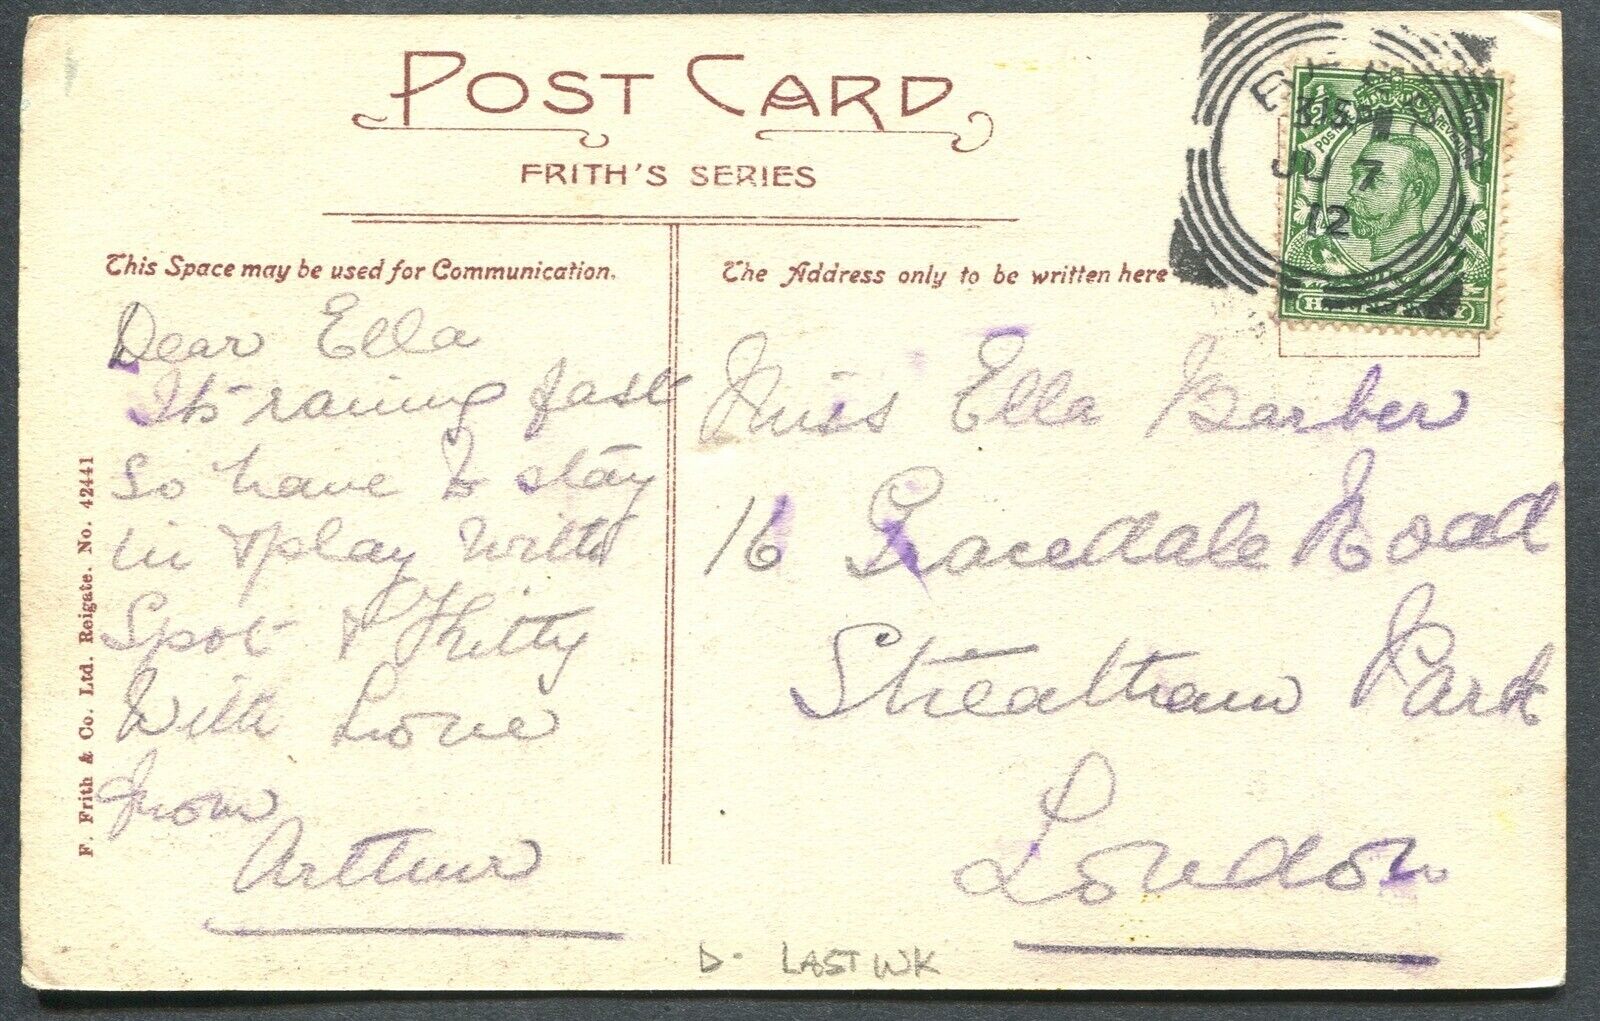 POST CARD
FRITH'S SERIES
This Space may be used for Communication.
The Address only to be written here
Dear Ella
Its raining fast
so have to stay
in & play with
Spot & Kitty
With Love
from
Arthur
Miss Ella Barber
16 Road
Streatham Park
London
3.15 PM
JU 7
12
POSTAGE REVENUE
HALFPENNY
F. Frith & Co. Ltd. Reigate. No. 42441
D. LAST WK